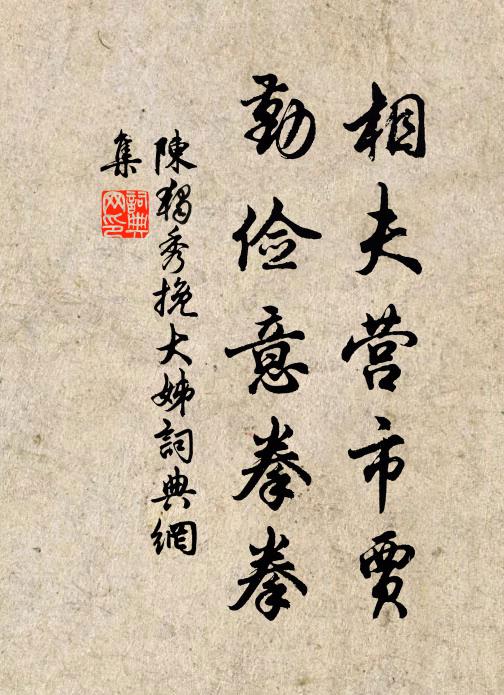 相夫营市贾
勤俭意拳拳
陳獨秀挽大姊詞典網
集
詞典网印